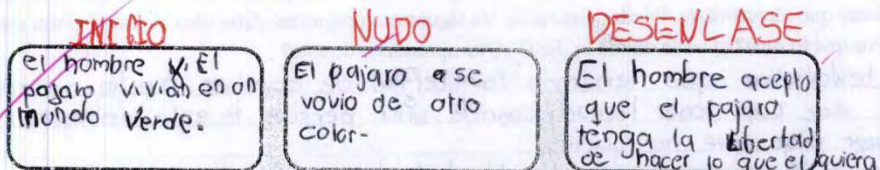 INICIO
el hombre y, El
pajaro vivian en on
mondo verde.
NUDO
El pajaro ese
vovio de otro
color-
DESENLASE
El hombre acepto
que el pajaro
tenga la Libertad
de hacer lo que el quiera